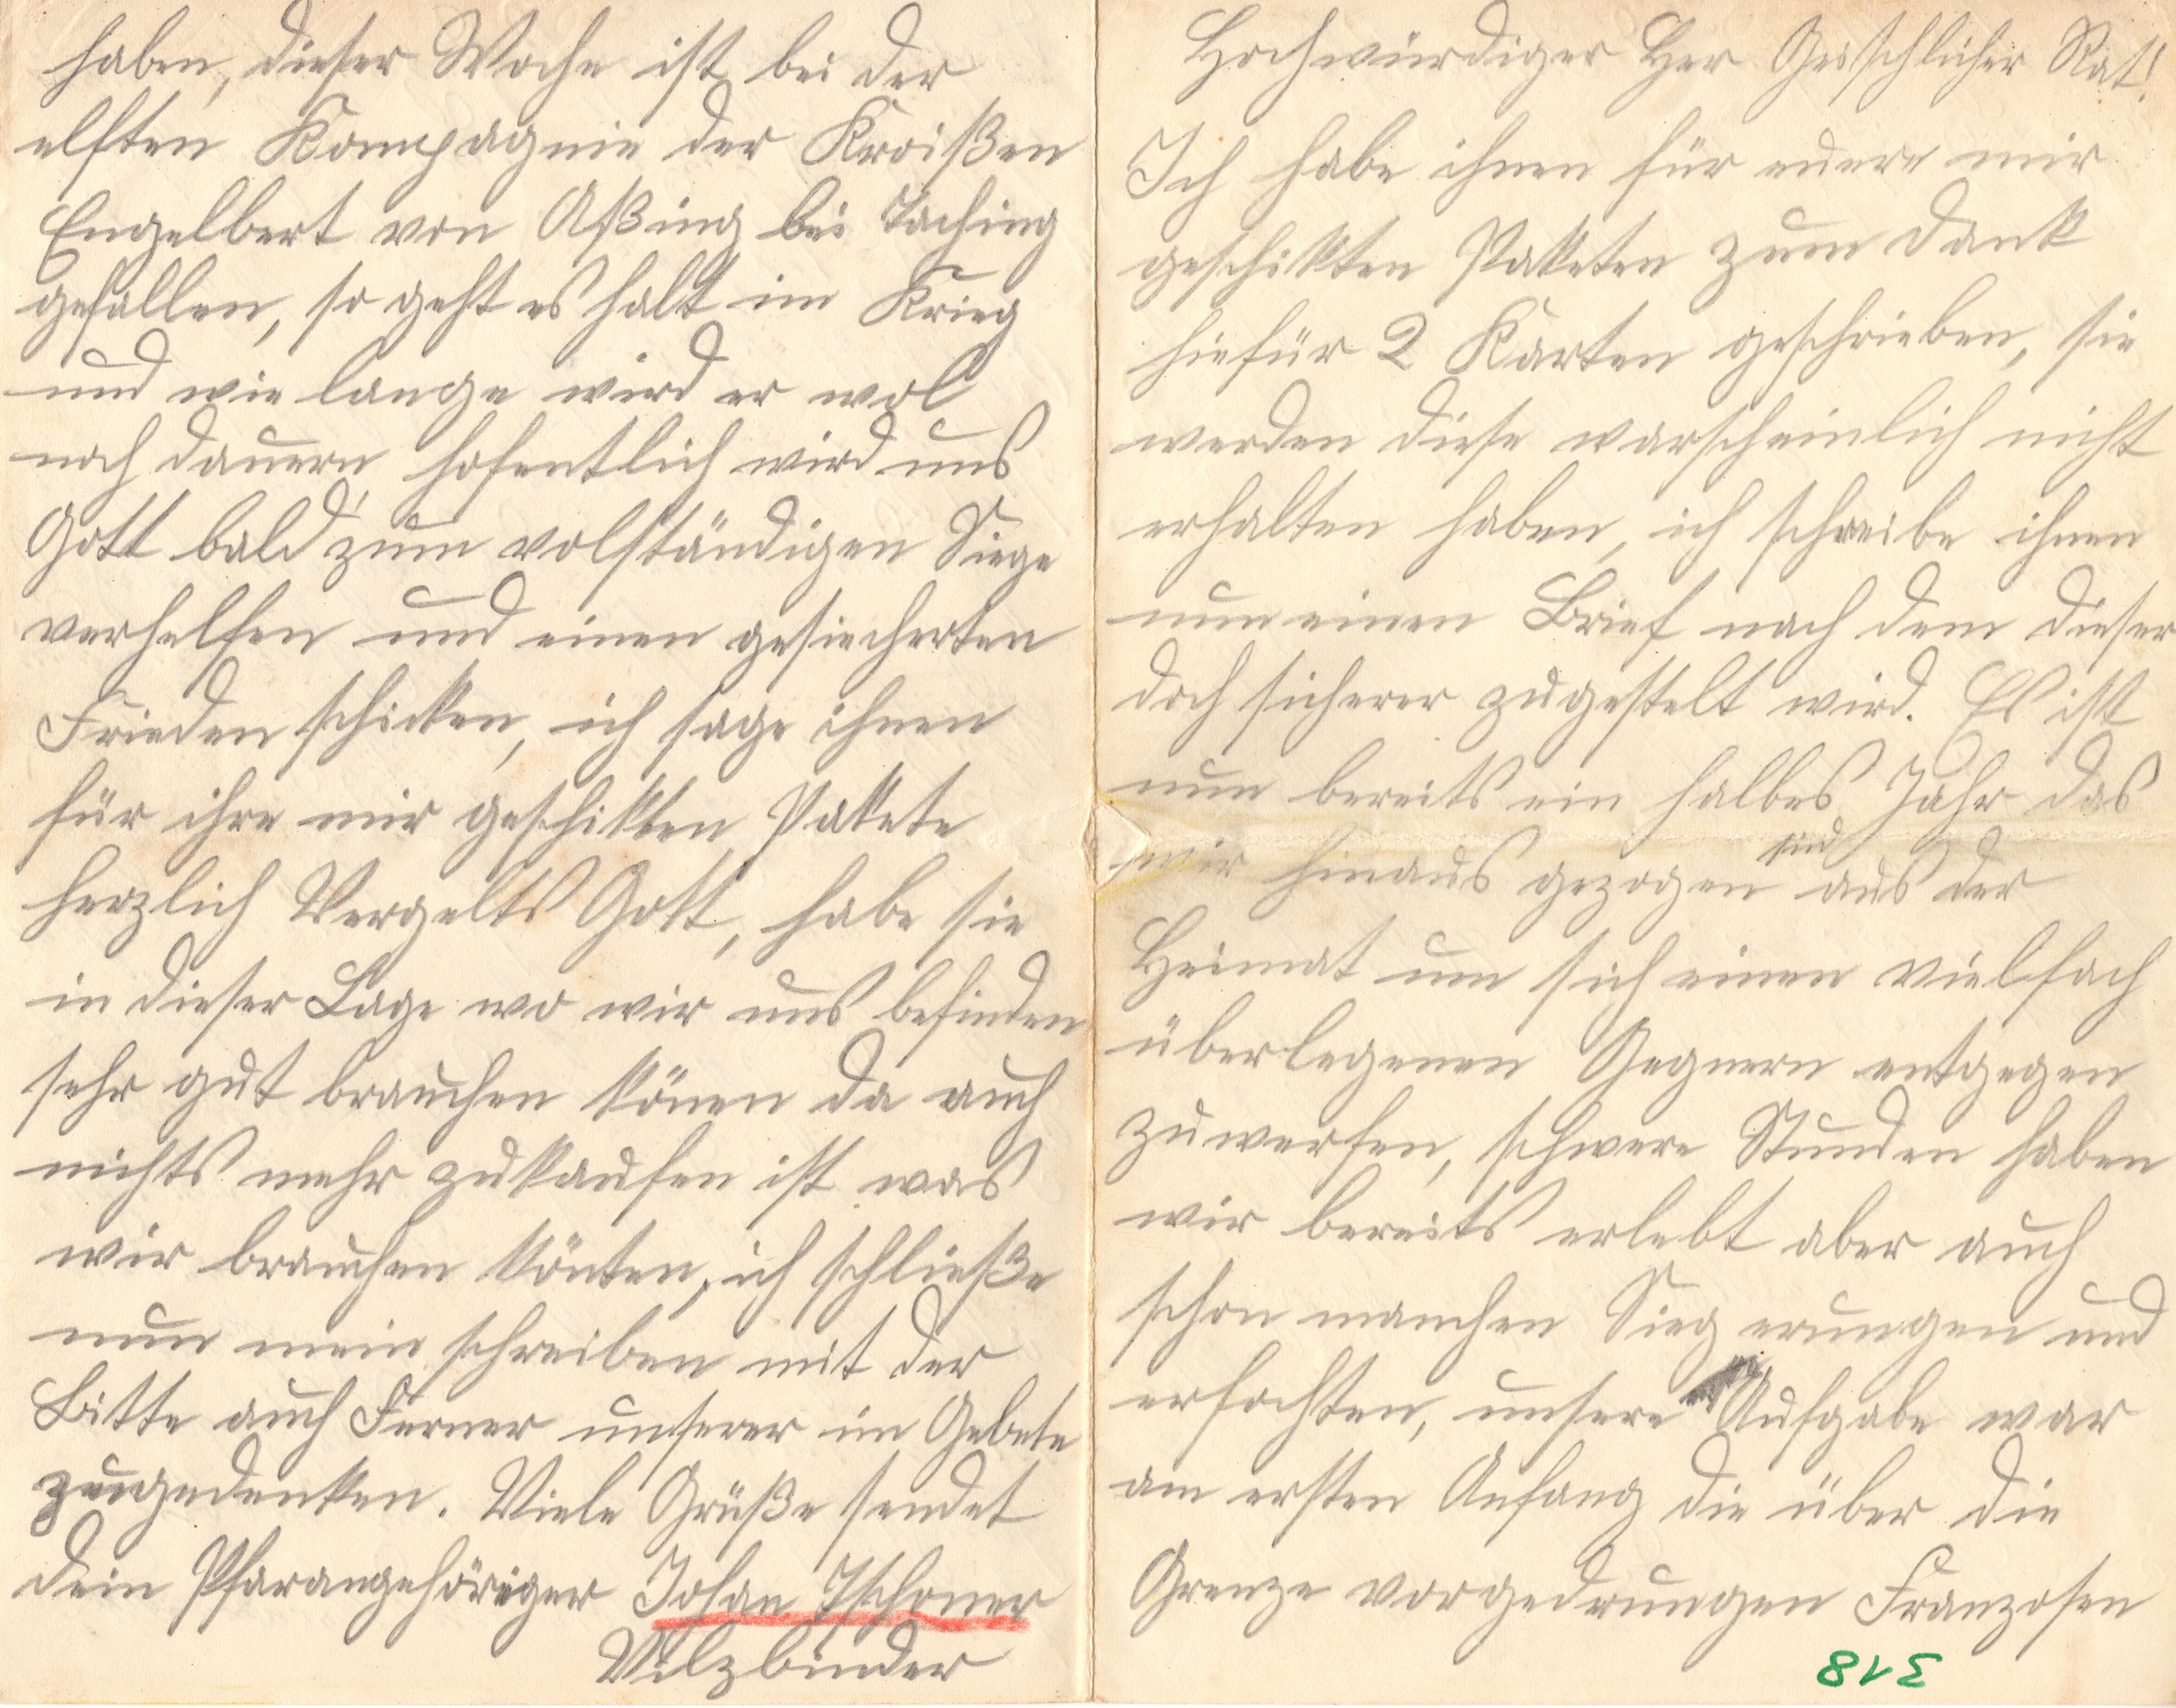 Hochwürdiger Her Geistchlicher Rat!
Ich habe ihnen für euere mir
geschikten Paketen zum Dank
hiefür 2 Karten geschrieben, sie
werden diese warscheinlich nicht
erhalten haben, ich schreibe ihnen
nun einen Brief nach dem dieser
doch sicherer zugestelt wird. Es ist
nun bereits ein halbes Jahr das
wir hinaus gezogen sind aus der
Heimat um sich einen vielfach
überlegenen Gegnern entgegen
zuwerfen, schwere Stunden haben
wir bereits erlebt aber auch
schon manchen Sieg erungen und
erfochten, unsere Aufgabe war
am ersten Anfang die über die
Grenze vorgedrungen Franzosen
318
haben, dieser Woche ist bei der
elften Kompagnie der Kroißen
Engelbert von Aßing bei Taching
gefallen, so geht es halt im Krieg
und wie lange wird er wol
noch dauern, hofentlich wird uns
Gott bald zum volständigen Siege
verhelfen und einen gesiecherten
Frieden schicken, ich sage ihnen
für ihre mir geschikten Pakete
herzlich Vergelts Gott, habe sie
in dieser Lage wo wir uns befinden
sehr gut brauchen könen da auch
nichts mehr zukaufen ist was
wir brauchen könten, ich schließe
nun mein schreiben mit der
Bitte auch Ferner unserer im Gebete
zugedenken. Viele Grüße sendet
dein Pfarangehöriger Johan Tschoner
Vilzbinder